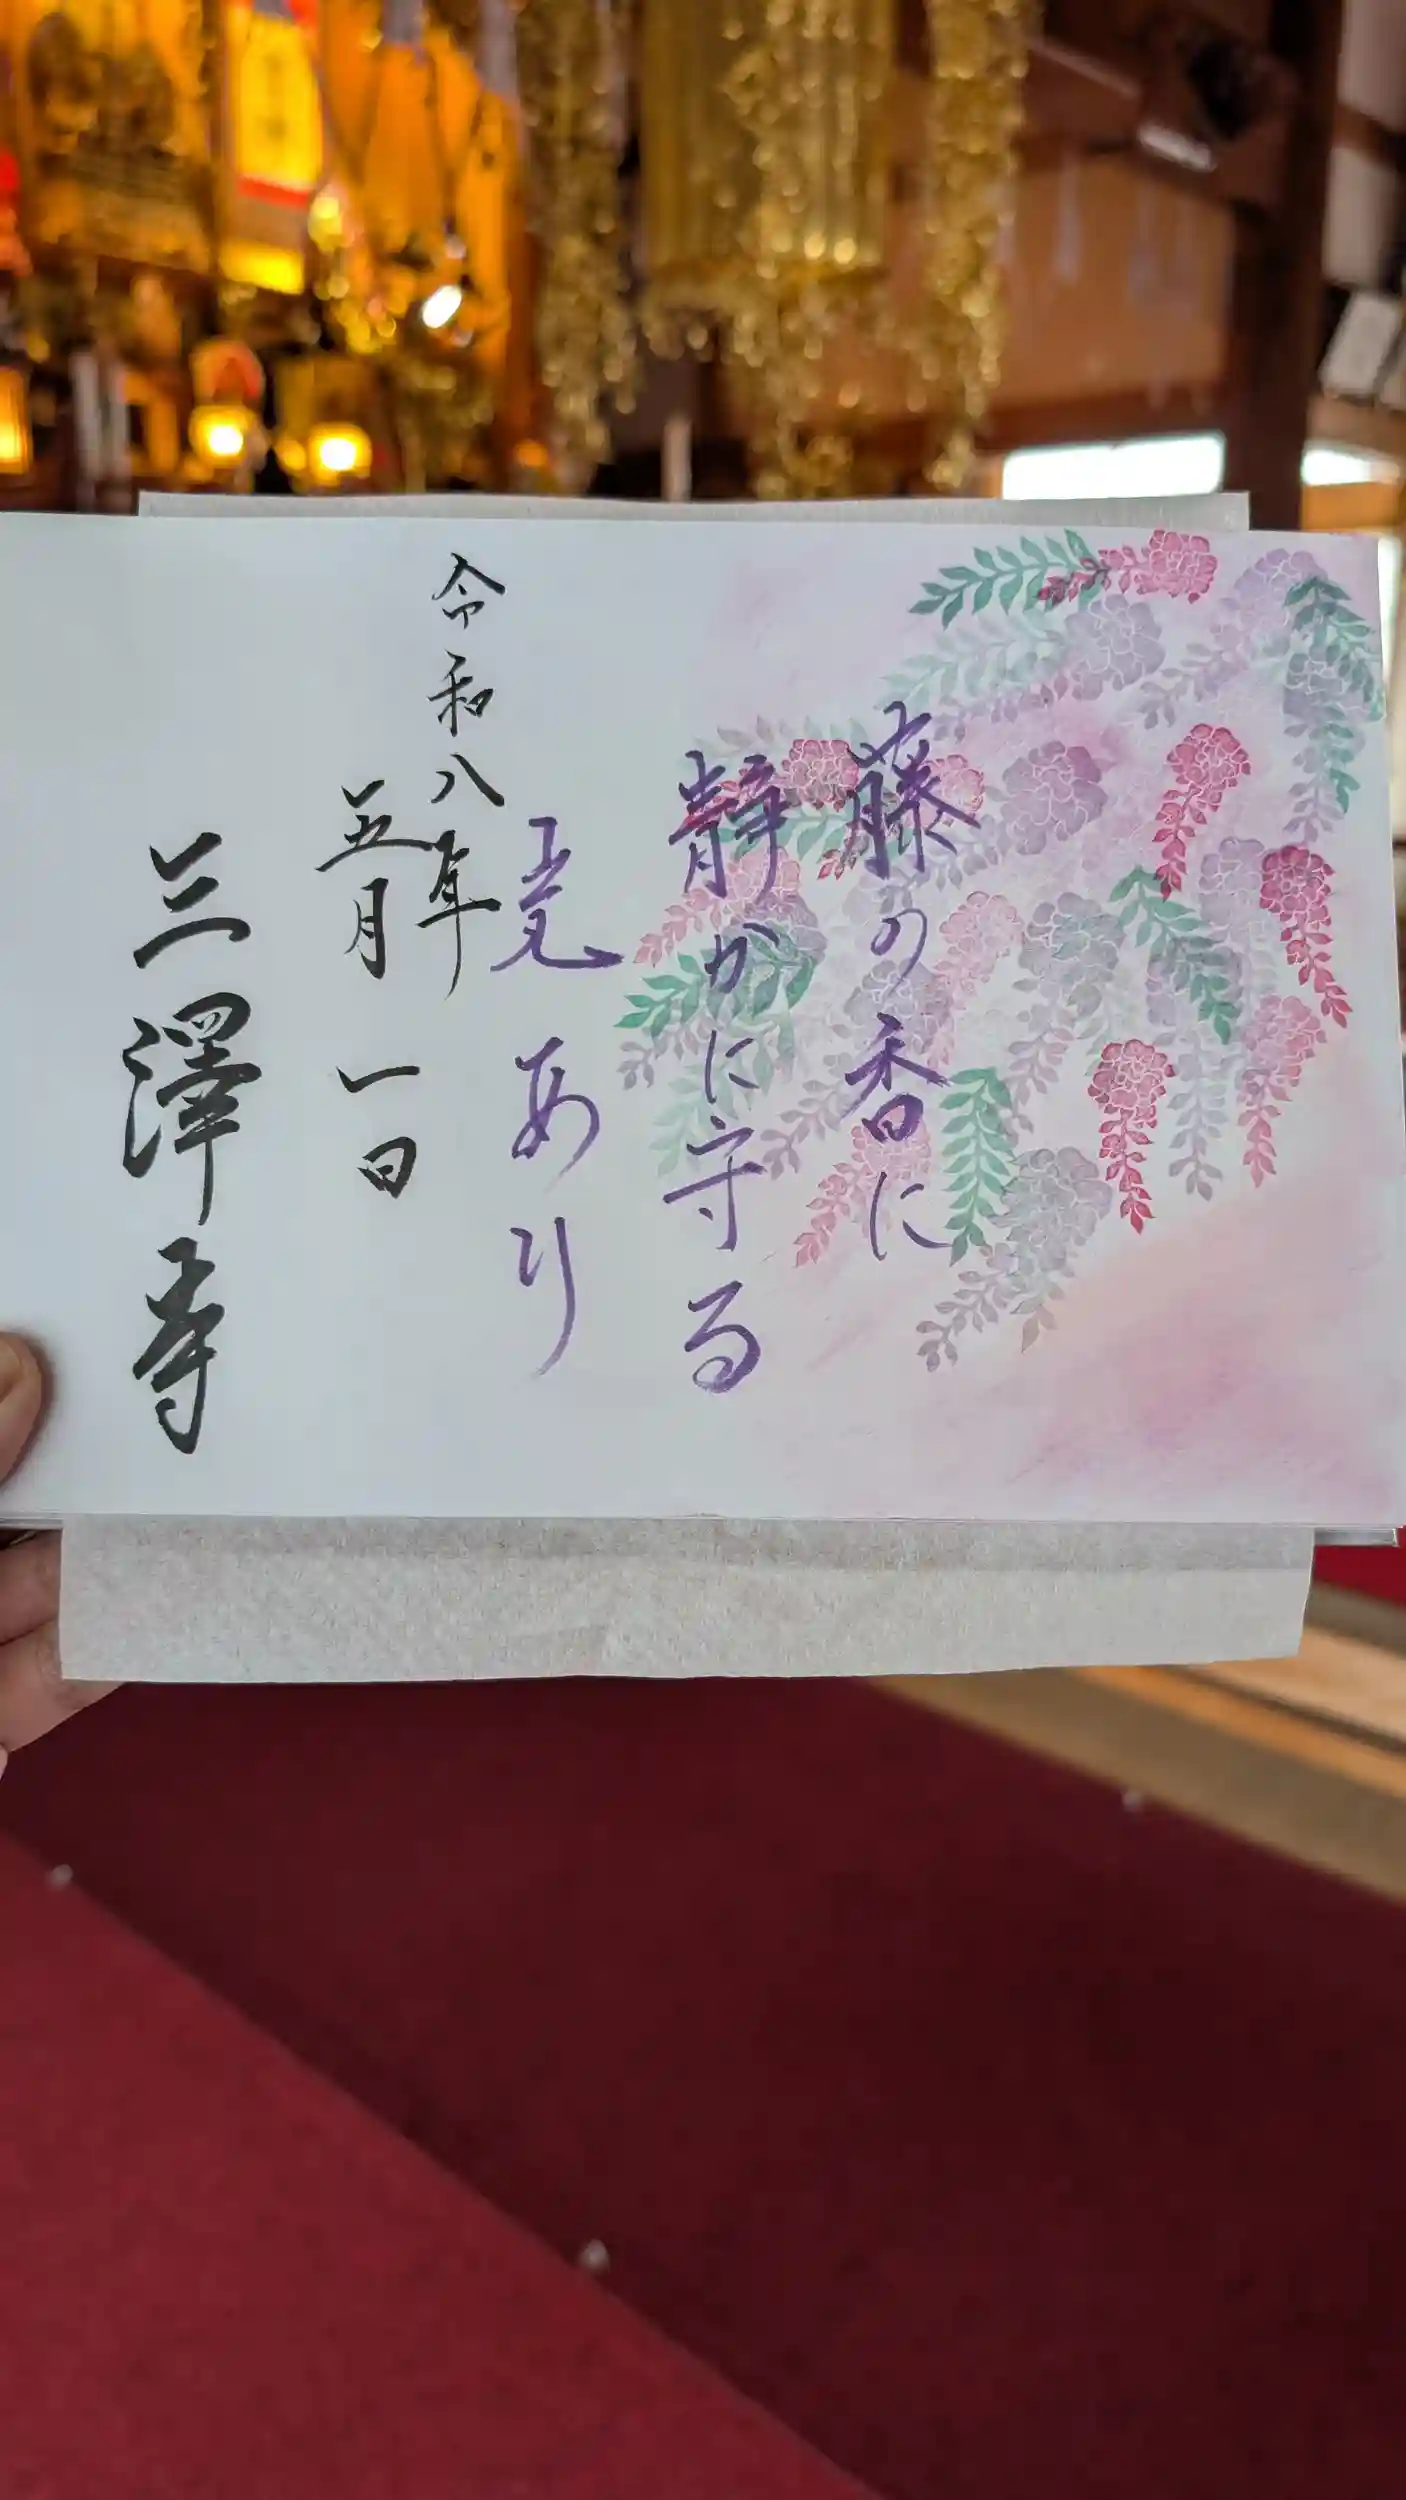 藤の香に
静かに守る
竜あり
令和八年
五月一日
三澤寺